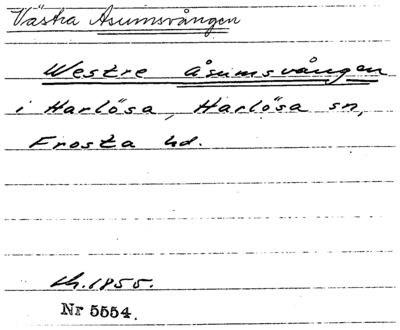 Västra Åsumsvången
Westre Åsumsvången
i Harlösa, Harlösa sn,
Frosta hd.
1855.
Nr 5554.